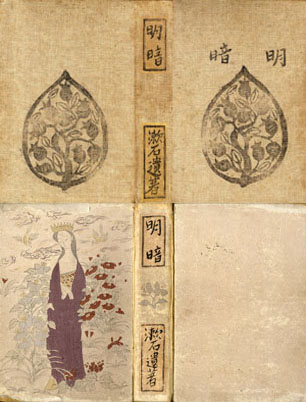 明暗
漱石遺著
明暗
明暗
漱石遺著